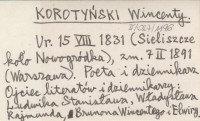 KOROTYŃSKI Wincenty
Ur. 15 VIII 1831 (Sieliszcze
koło Nowogródka), zm. 7 II 1891
(Warszawa). Poeta i dziennikarz
Ojciec literatów i dziennikarzy:
Ludwika Stanisława, Władysława
Rajmunda, Brunona Wincentego i Elwiry